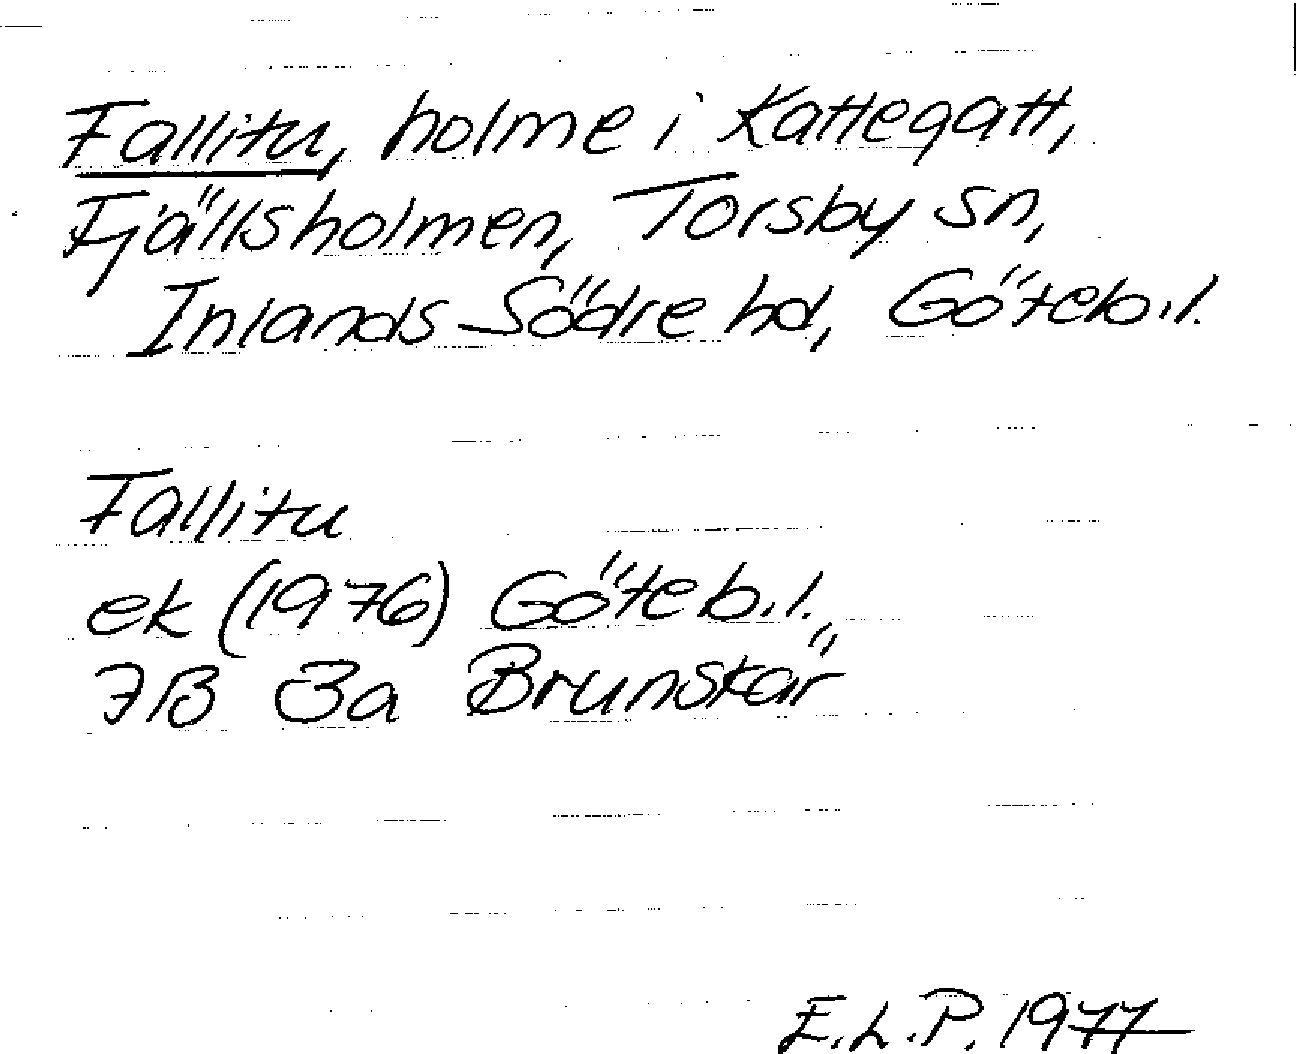 Fallitu, holme i Kattegatt,
Fjällsholmen, Torsby sn,
Inlands Södre hd, Göteb.l.
Fallitu
ek (1976) Göteb.l.
7B 3a Brunskär
E.L.P. 1977